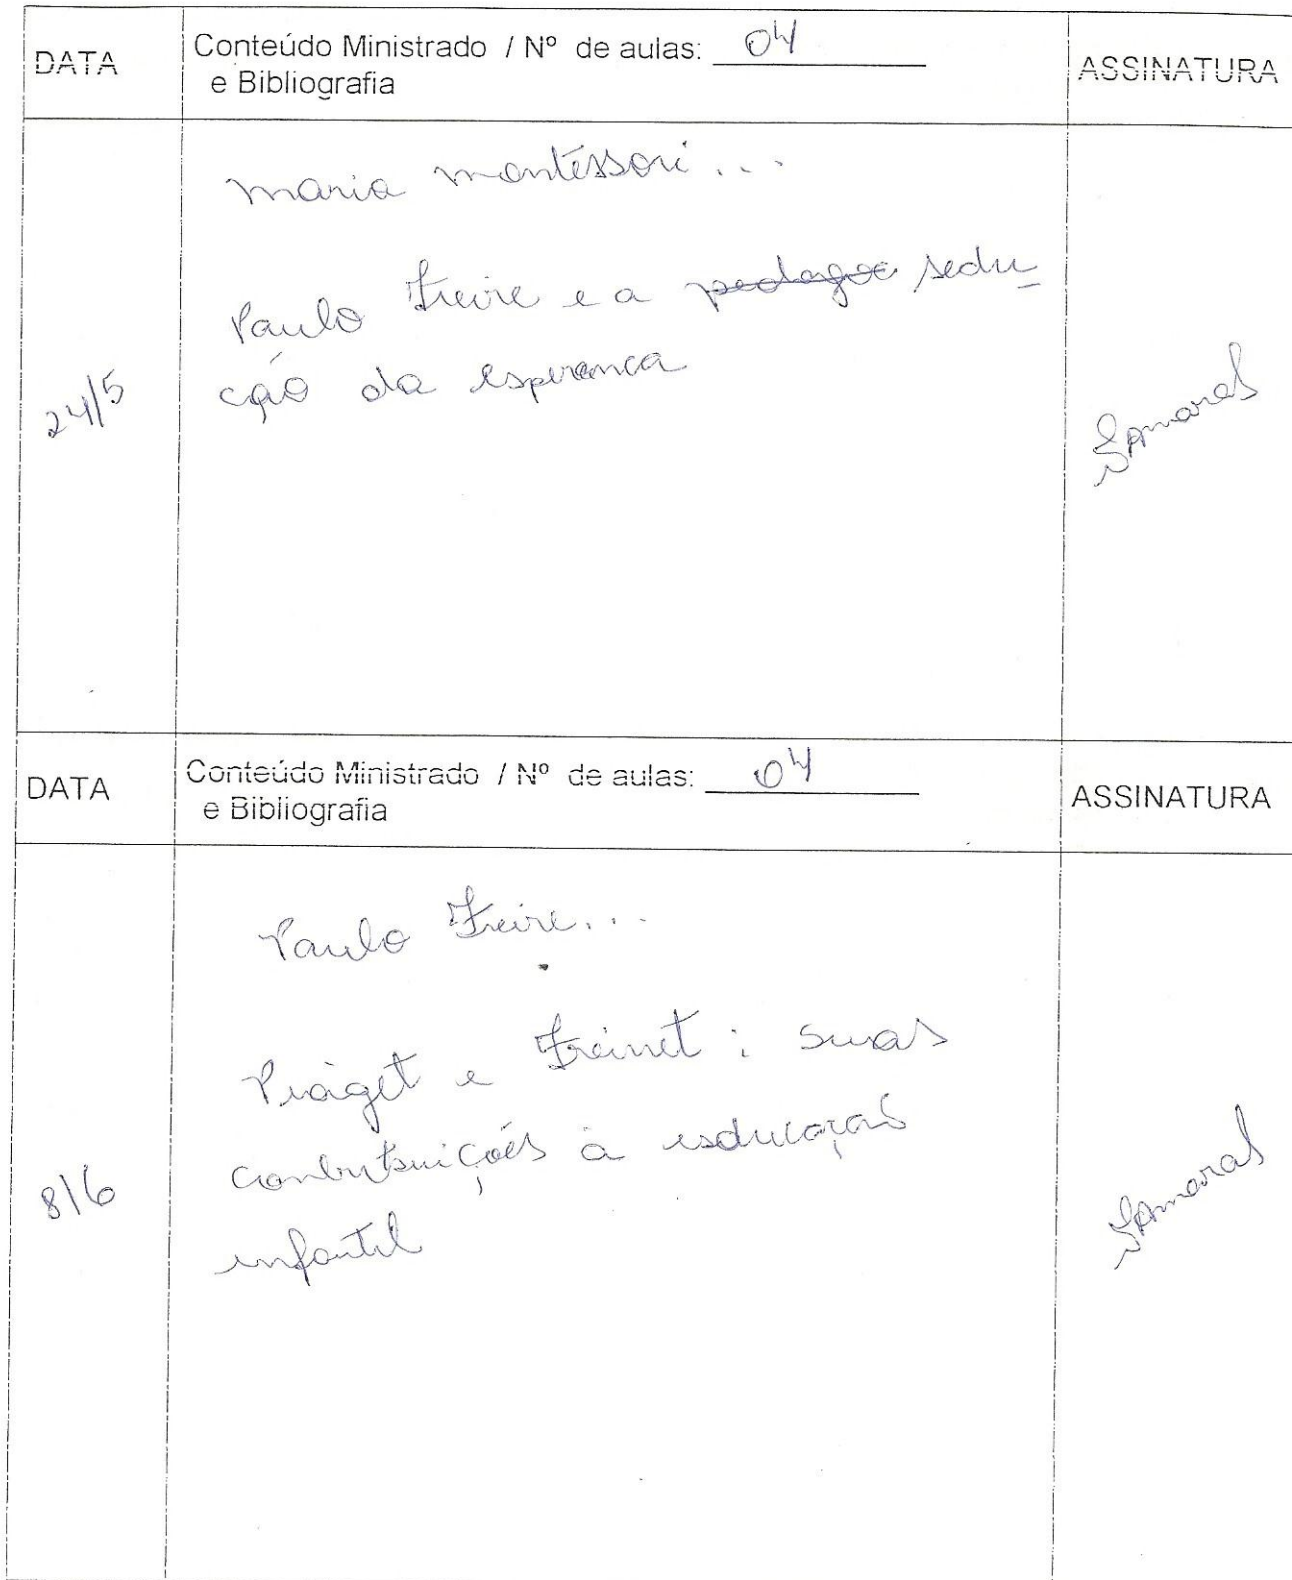 DATA
Conteúdo Ministrado / Nº de aulas: 04
e Bibliografia
ASSINATURA
maria montéssori...
Paulo Freire e a pedagoc sedu
ção da esperanca
24/5
SAmaral
DATA
Conteúdo Ministrado / Nº de aulas: 04
e Bibliografia
ASSINATURA
Paulo Freire...
Piaget e Freinet: suas
contribuições à educação
infantil
8/6
SAmaral